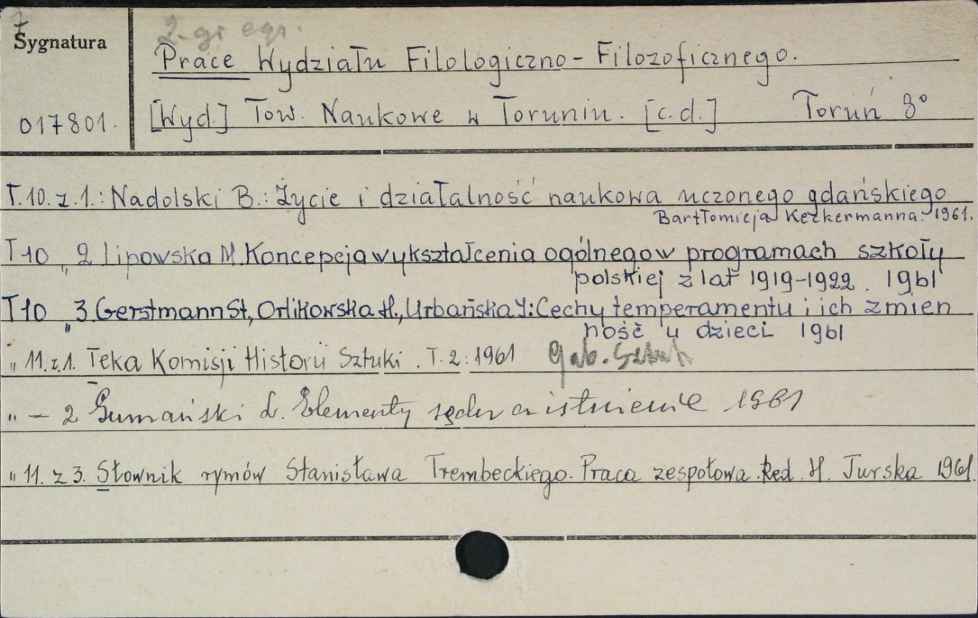 2-gi egz.
Sygnatura
Prace Wydziału Filologiczno-Filozoficznego.
017801. [Wyd.] Tow. Naukowe w Toruniu. [c.d.] Toruń 8°
T.10. z.1.: Nadolski B.: Życie i działalność naukowa uczonego gdańskiego
Bartłomieja Keckermanna. 1961.
T10 „ 2 Lipowska M. Koncepcja wykształcenia ogólnego w programach szkoły
polskiej z lat 1919-1922. 1961
T10 „ 3. Gerstmann St., Orlikowska H., Urbańska J.: Cechy temperamentu i ich zmien
ność u dzieci 1961
„ 11. z.1. Teka Komisji Historii Sztuki. T.2: 1961 Gab. Sztuki
„ — 2 Gumański L. Elementy sądu a istnienie 1961
„ 11. z 3. Słownik rymów Stanisława Trembeckiego. Praca zespołowa. Red. H. Turska 1961.